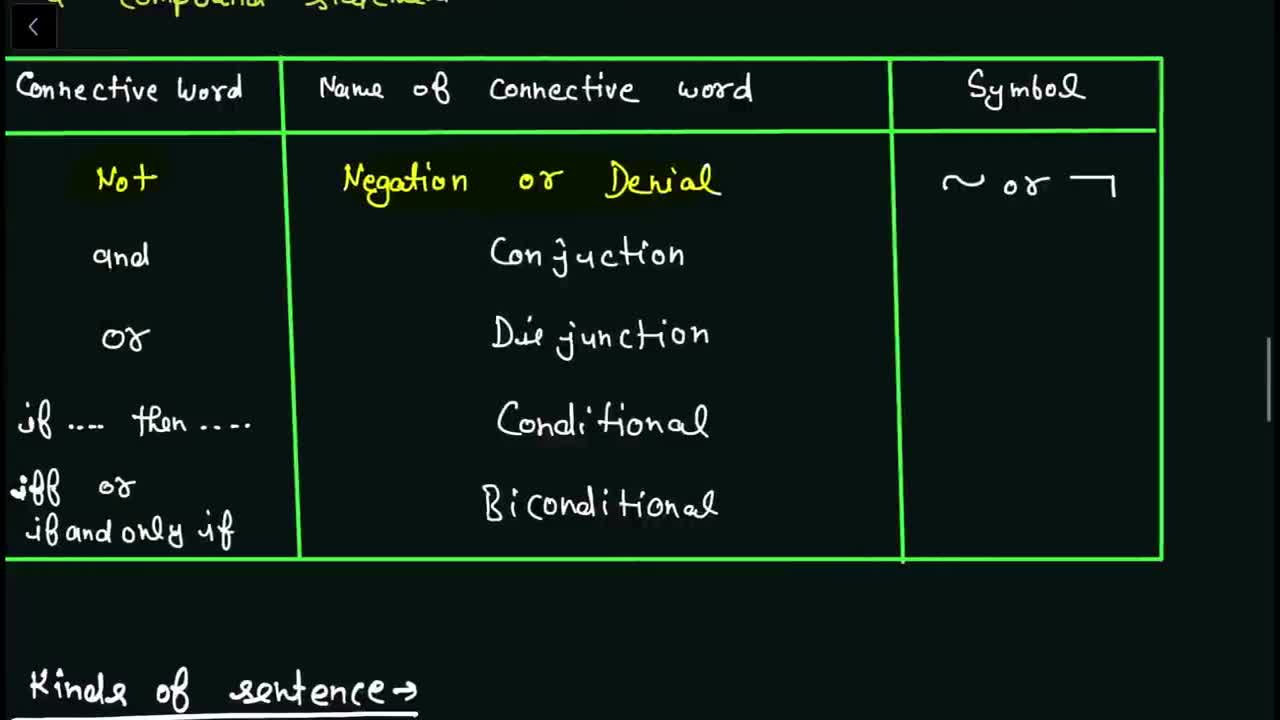 Connective word Name of connective word Symbol
Not Negation or Denial ~ or ¬
and Conjuction
or Disjunction
if .... then .... Conditional
iff or
if and only if Biconditional
Kinds of sentence→